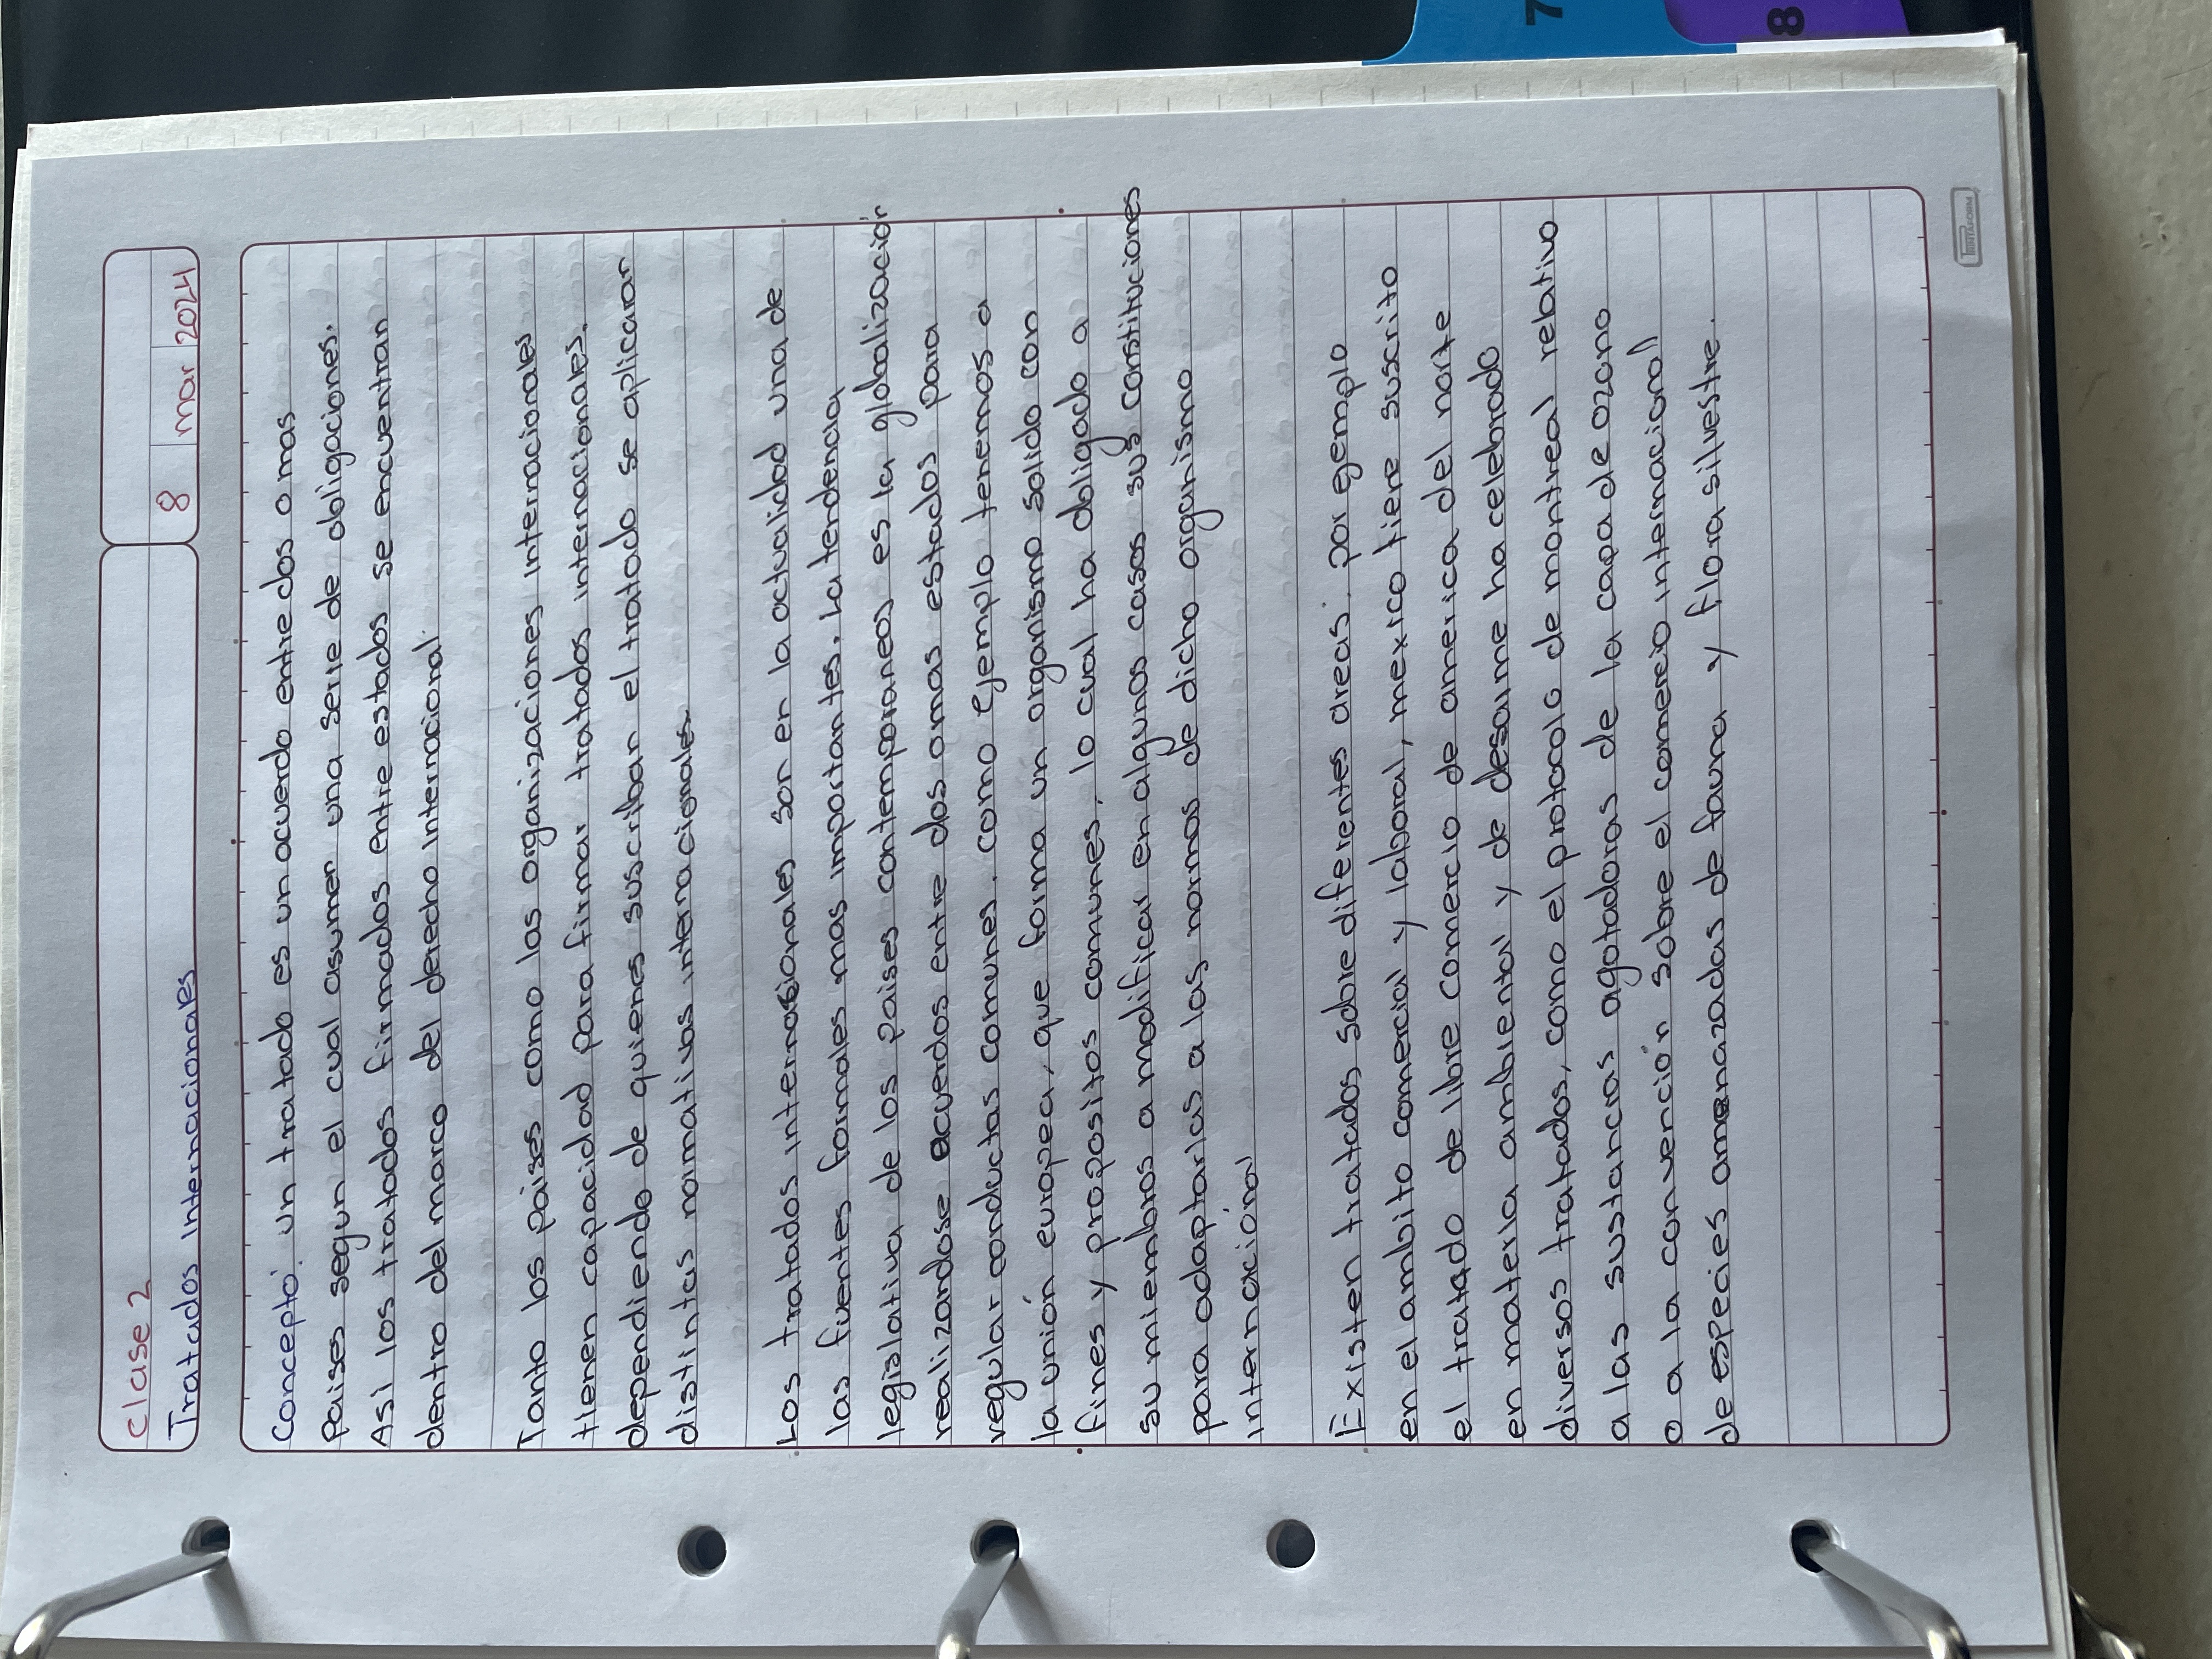 clase 2
8 mar 2024
Tratados Internacionales
Concepto: un tratado es un acuerdo entre dos o mas
Paises segun el cual asumen una serie de obligaciones.
Asi los tratados firmados entre estados se encuentran
dentro del marco del derecho internacional.
Tanto los paises como las organizaciones internacionales
tienen capacidad para firmar tratados internacionales,
dependiendo de quienes suscriban el tratado se aplicaran
distintas normativas internacionales
Los tratados internacionales son en la actualidad una de
las fuentes formales mas importantes. La tendencia
legislativa de los paises contemporaneos es la globalización
realizandose acuerdos entre dos omas estados para
regular conductas comunes, como ejemplo tenemos a
la unión europea, que forma un organismo solido con
fines y propositos comunes, lo cual ha obligado a
su miembros a modificar en algunos casos sus constituciones
para adaptarlas a las normas de dicho organismo
internacional
Existen tratados sobre diferentes areas, por egemplo
en el ambito comercial y laboral, mexico tiene suscrito
el tratado de libre comercio de america del norte
en materia ambiental y de desarme ha celebrado
diversos tratados, como el protocolo de montreal relativo
a las sustancias agotadoras de la capa de ozono
o a la convención sobre el comercio internacional
de especies amenazadas de fauna y flora silvestre.
PRINTAFORM
7
8